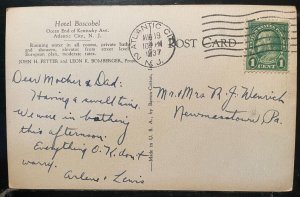 Hotel Boscobel
Ocean End of Kentucky Ave.
Atlantic City, N. J.
Running water in all rooms, private baths
and showers, elevator from street level.
European plan, moderate rates.
JOHN H. RITTER and LEON K. BOMBERGER,
POST CARD
ATLANTIC CITY
AUG 19
1937
N.J.
1 CENT 1
Dear Mother & Dad:
Having a swell time.
We were in bathing
this afternoon.
Everything O.K. don't
worry.
Arlene & Lewis
Mr. & Mrs. R. J. Wenrich
Newmanstown, Pa.